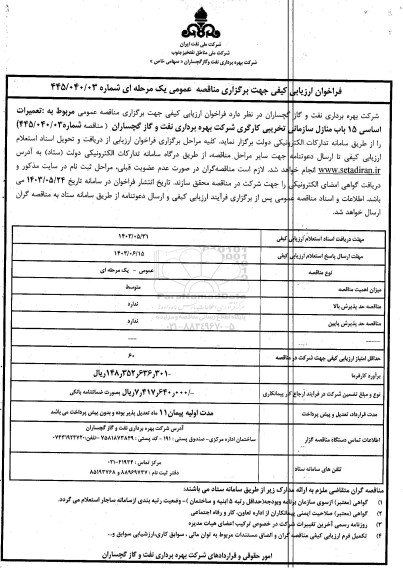 شرکت ملی نفت ایران
شرکت ملی مناطق نفتخیز جنوب
شرکت بهره برداری نفت و گاز گچساران « سهامی خاص »
فراخوان ارزیابی کیفی جهت برگزاری مناقصه عمومی یک مرحله ای شماره ۴۴۵/۰۴۰/۰۳
شرکت بهره برداری نفت و گاز گچساران در نظر دارد فراخوان ارزیابی کیفی جهت برگزاری مناقصه عمومی مربوط به :تعمیرات
اساسی ۱۵ باب منازل سازمانی تخریبی کارگری شرکت بهره برداری نفت و گاز گچساران ( مناقصه شماره ۴۴۵/۰۴۰/۰۳)
را از طریق سامانه تدارکات الکترونیکی دولت برگزار نماید. کلیه مراحل برگزاری فراخوان ارزیابی از دریافت و تحویل اسناد استعلام
ارزیابی کیفی تا ارسال دعوتنامه جهت سایر مراحل مناقصه، از طریق درگاه سامانه تدارکات الکترونیکی دولت (ستاد) به آدرس
www.setadiran.ir انجام خواهد شد. لازم است مناقصه‌گران در صورت عدم عضویت قبلی، مراحل ثبت نام در سایت مذکور و
دریافت گواهی امضای الکترونیکی را جهت شرکت در مناقصه محقق سازند. تاریخ انتشار فراخوان در سامانه تاریخ ۱۴۰۳/۰۵/۲۴ می
باشد. اطلاعات و اسناد مناقصه عمومی پس از برگزاری فرآیند ارزیابی کیفی و ارسال دعوتنامه از طریق سامانه ستاد به مناقصه گران
ارسال خواهد شد.
مهلت دریافت اسناد استعلام ارزیابی کیفی ۱۴۰۳/۰۵/۳۱
مهلت ارسال پاسخ استعلام ارزیابی کیفی ۱۴۰۳/۰۶/۱۵
نوع مناقصه عمومی - یک مرحله ای
میزان اهمیت مناقصه متوسط
مناقصه حد پذیرش بالا ندارد
مناقصه حد پذیرش پایین ندارد
حداقل امتیاز ارزیابی کیفی جهت شرکت در مناقصه ۶۰
برآورد کارفرما ۱۴۸٫۳۵۲٫۶۳۶٫۳۰۱-ریال
نوع و مبلغ تضمین شرکت در فرایند ارجاع کار پیمانکاری ۷٫۴۱۷٫۶۴۰٫۰۰۰-ریال بصورت ضمانتنامه بانکی
مدت قرارداد، تعدیل و پیش پرداخت مدت اولیه پیمان ۱۱ ماه تعدیل پذیر بوده و بدون پیش پرداخت می باشد
اطلاعات تماس دستگاه مناقصه گزار آدرس شرکت بهره برداری نفت و گاز گچساران
ساختمان اداره مرکزی- صندوق پستی : ۱۹۱ - کد پستی : ۷۵۸۱۸۷۳۸۴۹ -تلفن:۰۷۴۳۱۹۲۳۷۲۰
تلفن های سامانه ستاد مرکز تماس : ۴۱۹۳۴-۰۲۱
دفتر ثبت نام : ۸۸۹۶۹۷۳۷ و ۸۵۱۹۳۷۶۸
مناقصه گران متقاضی ملزم به ارائه مدارک زیر از طریق سامانه ستاد می باشند:
۱) گواهی (معتبر) ازسوی سازمان برنامه وبودجه(حداقل رتبه ۵ ابنیه و ساختمان )- وضعیت رتبه بندی ازسامانه ساجار استعلام می گردد.
۲) گواهی (معتبر) صلاحیت ایمنی پیمانکاران از اداره تعاون، کار و رفاه اجتماعی
۳) روزنامه رسمی آخرین تغییرات شرکت در خصوص ترکیب اعضای هیات مدیره
۴) تکمیل فرم ارزیابی کیفی مناقصه گران و الصاق مستندات مربوط به توان مالی ، سوابق کاری،ارزشیابی سوابق و...
امور حقوقی و قراردادهای شرکت بهره برداری نفت و گاز گچساران